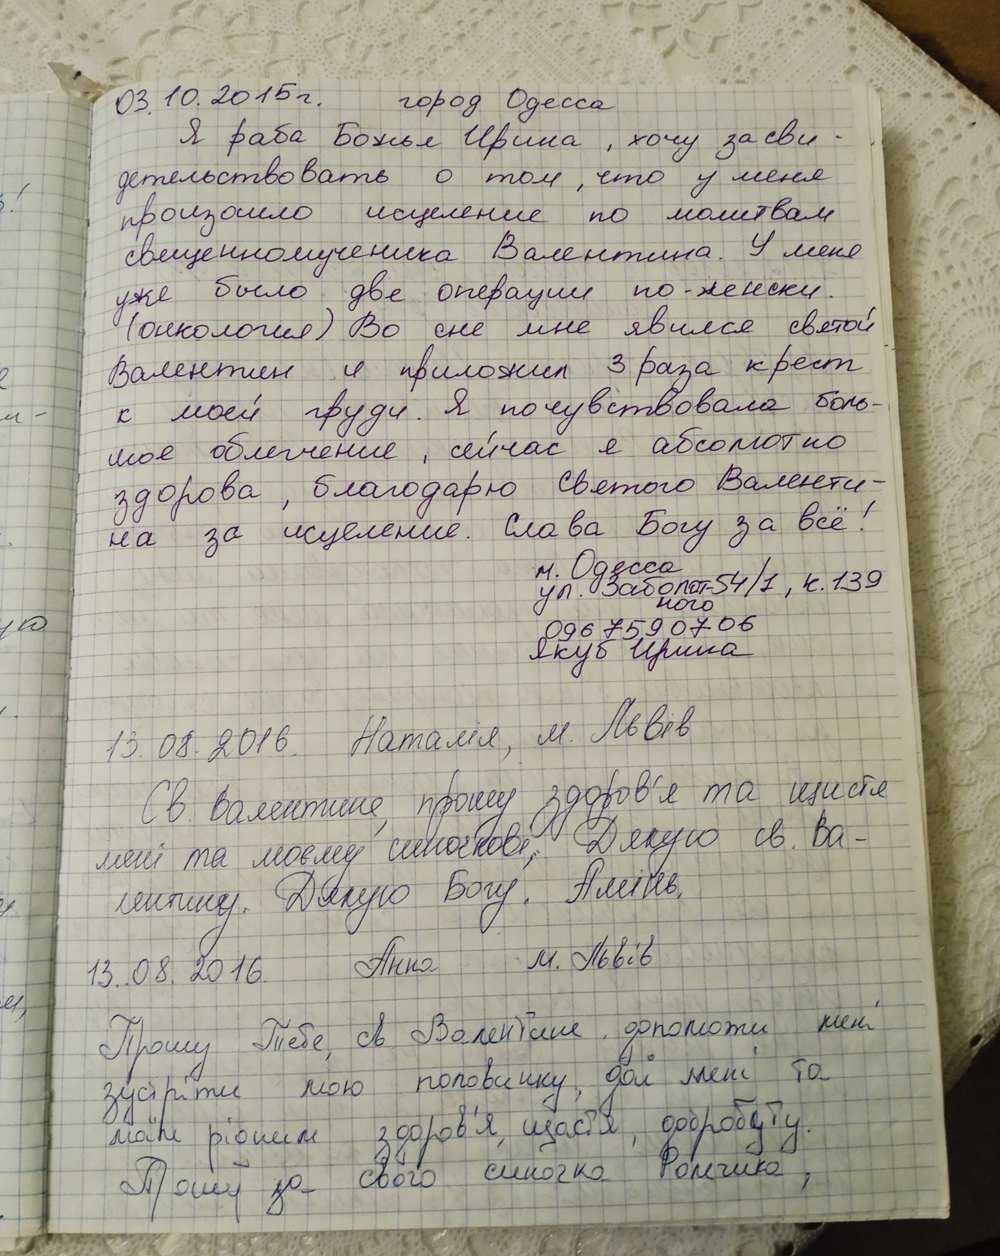 03.10.2015г. город Одесса
Я раба Божья Ирина, хочу засви-
детельствовать о том, что у меня
произошло исцеление по молитвам
священномученика Валентина. У меня
уже было две операции по-женски.
(онкология) Во сне мне явился святой
Валентин и приложил 3 раза крест
к моей груди. Я почувствовала боль-
шое облегчение, сейчас я абсолютно
здорова, благодарю Святого Валенти-
на за исцеление. Слава Богу за всё!
м. Одесса
ул. Заболот-54/1, к.139
ного
0967590706
Якуб Ирина
13.08.2016. Наталія, м. Львів
Св. Валентине, прошу здоров'я та щистя
мені та моєму синочкові. Дякую св. Ва-
лентину. Дякую Богу. Амінь.
13.08.2016. Анна м. Львів
Прошу Тебе, св Валентине допоможи мені
зустріти мою половинку, дай мені та
моїм рідним здоров'я, щастя, добробуту.
Прошу за свого синочка Ромчика,